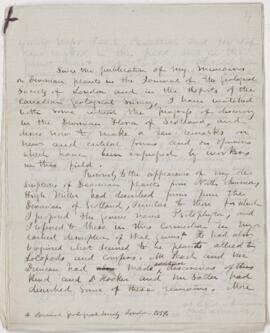 Since the publication of my Memoirs
on Devonian plants in the Journal of the Geological
Society of London and in the Reports of the
Canadian Geological Survey, I have watched
with some interest the progress of discovery
in the Devonian Flora of Scotland, and
desire now to make a few remarks on
new and critical forms, and on opinions
which have been expressed by workers
in this field.
Previously to the appearance of my de-
scriptions of Devonian plants from North America,
Hugh Miller had described forms from the
Devonian of Scotland, similar to those for which
I proposed the generic name Psilophyton; and
I referred to these in this connection in my
earliest description of that genus.* He had also
recognised what seemed to be plants allied to
Lycopods and Conifers. Mr. Peach and Mr
Duncan had made additional discoveries of this
kind and Dr Hooker and Mr Salter had
described some of these remains. More
* Journal Geological Society London 1859.